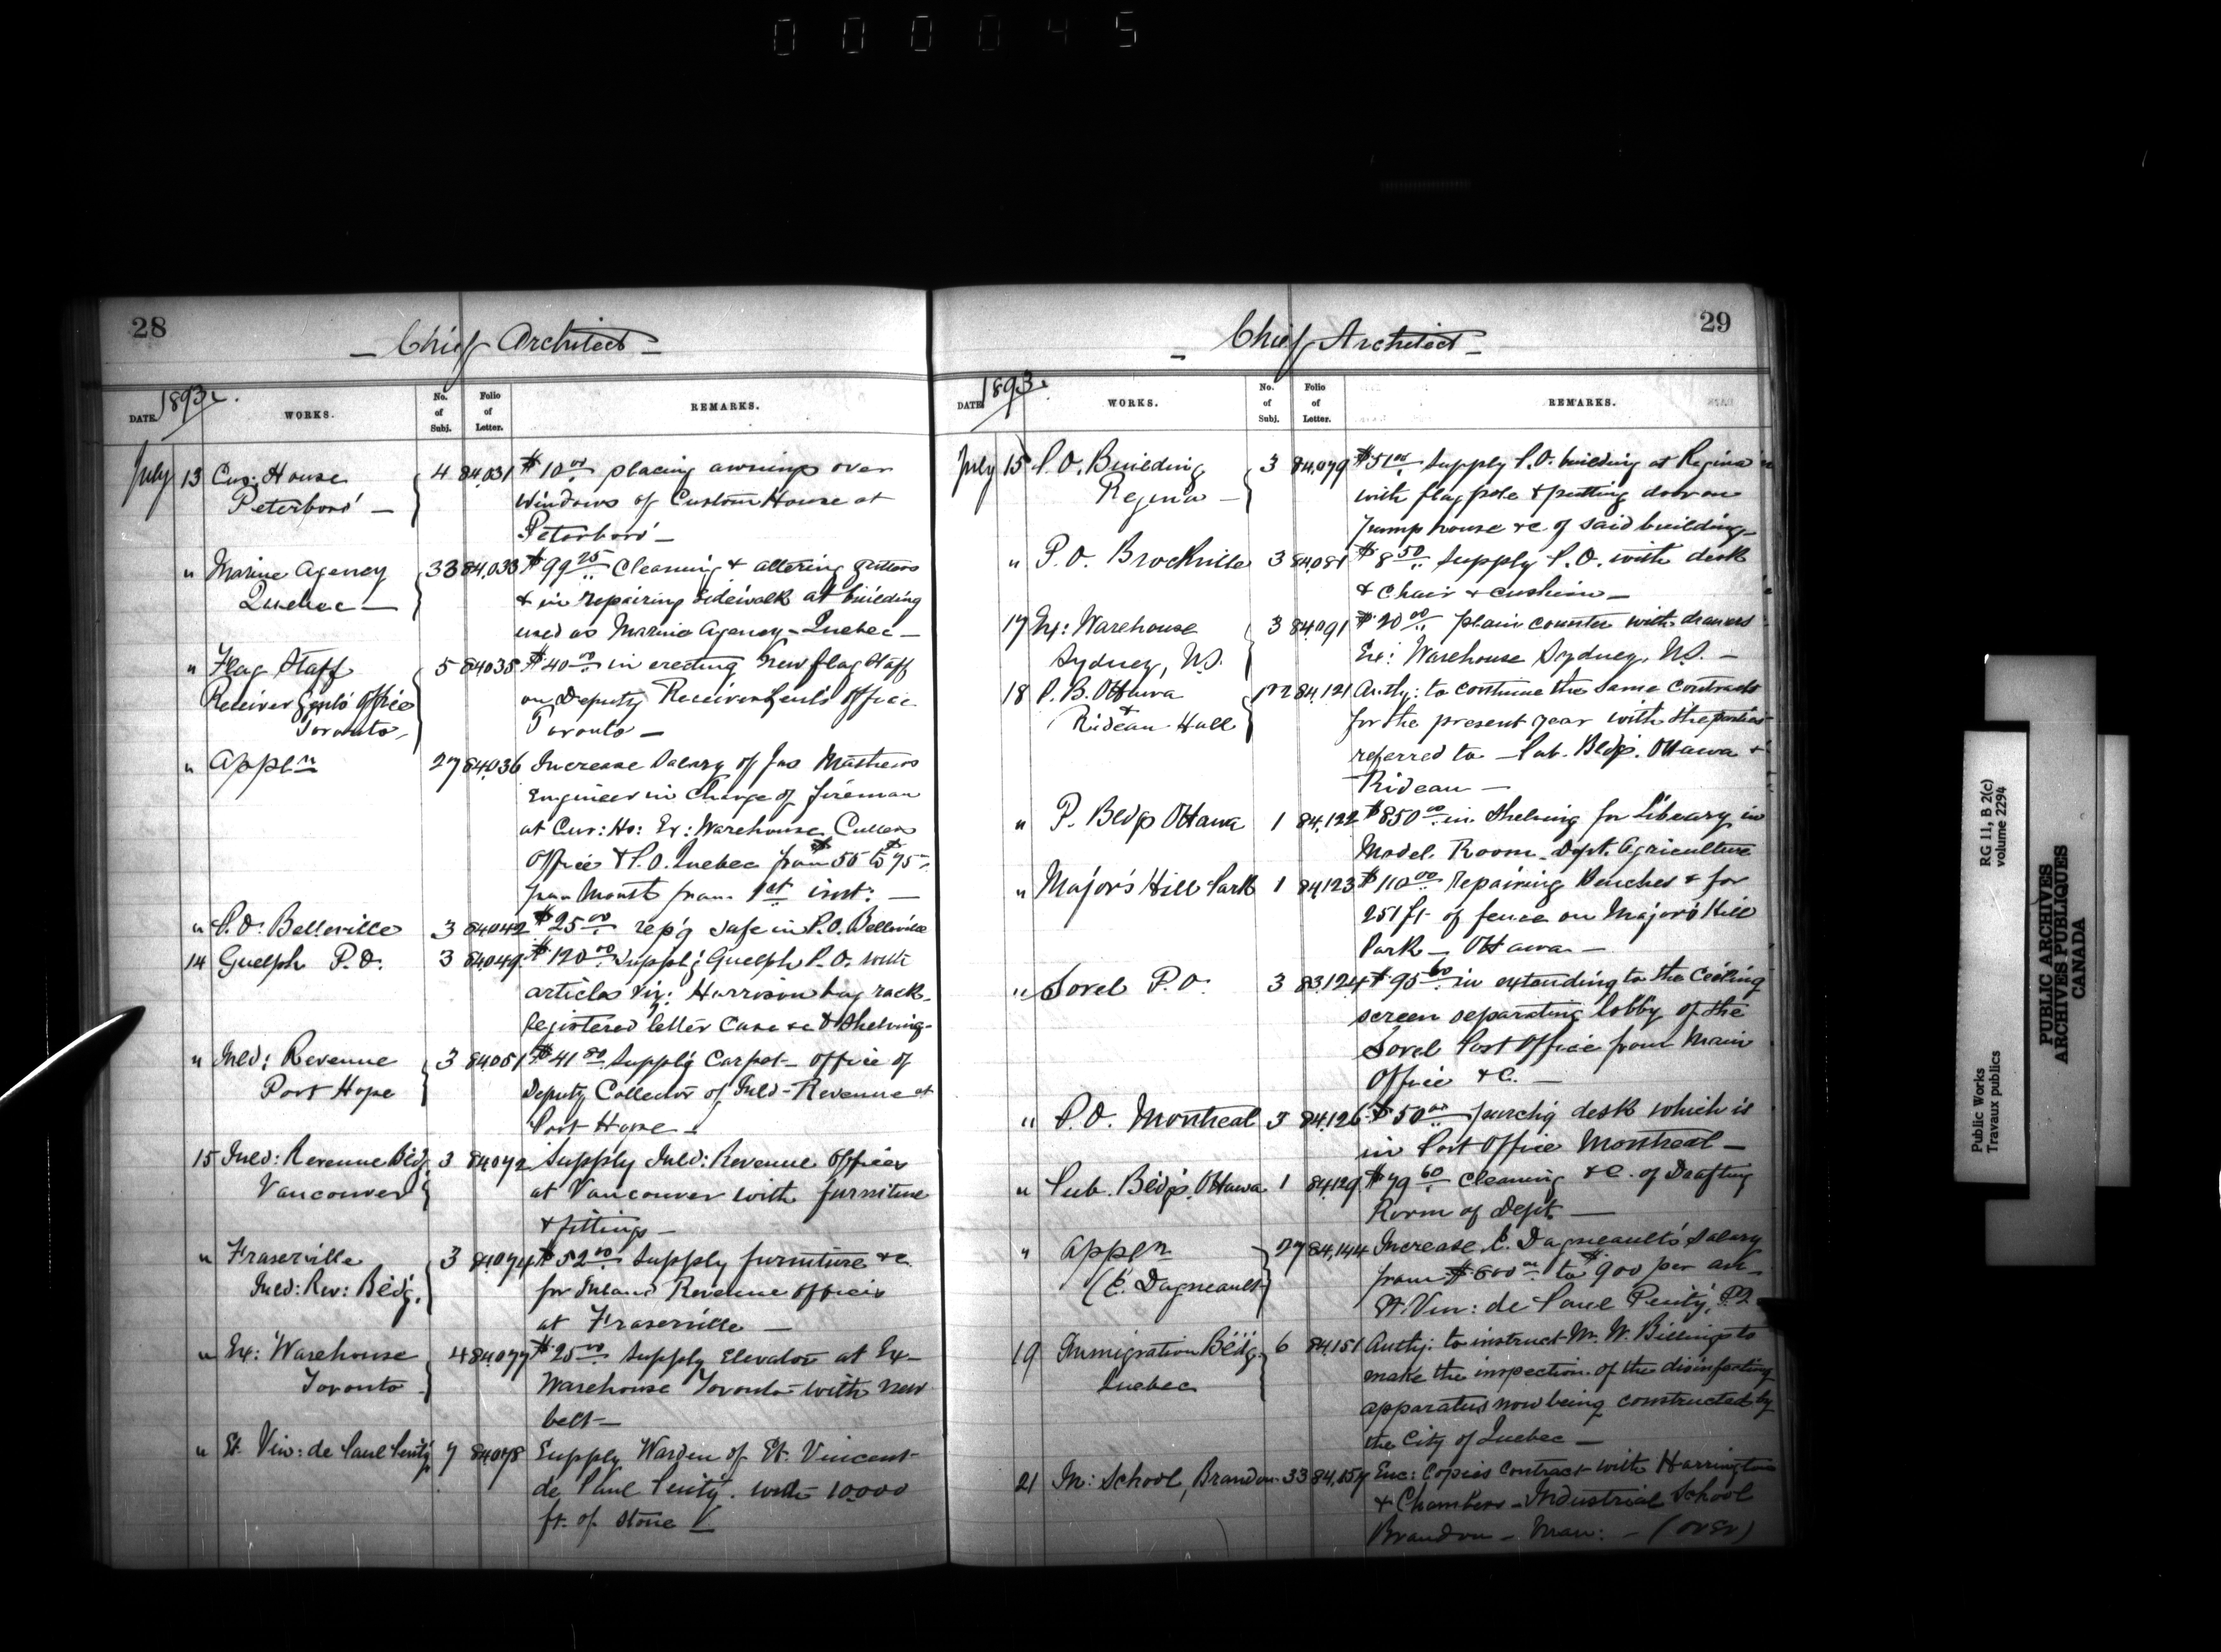 000045
28
Chief Architect
1893
DATE. WORKS. No. of Subj. Folio of Letter. REMARKS.
July 13 Cus: House 4 84,031 $10.00 placing awnings over
Peterboro' windows of Custom House at
Peterboro' —
" Marine Agency 33 84,033 $99.25 Cleaning & altering gutters
Quebec — & in repairing sidewalk at building
used as Marine Agency - Quebec —
" Flag Staff 5 84,035 $40.00 in erecting new flag staff
Receiver Genl's Office on Deputy Receiver Genl's Office
Toronto Toronto —
" Appln 27 84,036 Increase Salary of Jas Mathews
Engineer in Charge of fireman
at Cus: Ho: Ex: Warehouse, Cullers
Office & P.O. Quebec from $55 to $75
per Month from 1st inst: —
" P.O. Belleville 3 84,042 $25.00 rep'g safe in P.O. Belleville
14 Guelph P.O. 3 84,049 $120.00 Supply'g Guelph P.O. with
articles viz: Harrison bag rack,
Registered letter Case &c & Shelving —
" Inld: Revenue 3 84,051 $41.80 Supply'g Carpet — Office of
Port Hope Deputy Collector of Inld - Revenue at
Port Hope —
15 Inld: Revenue Bldg. 3 84,072 Supply Inld: Revenue Offices
Vancouver at Vancouver with furniture
& fittings —
" Fraserville 3 84,074 $52.00 Supply furniture &c.
Inld: Rev: Bldg. for Inland Revenue Offices
at Fraserville —
" Ex: Warehouse 4 84,077 $25.00 Supply Elevator at Ex —
Toronto Warehouse Toronto with new
belt —
" St. Vin: de Paul Penity 7 84,078 Supply Warden of St. Vincent
de Paul Penity. with 10,000
ft. of stone
29
Chief Architect
1893
DATE WORKS. No. of Subj. Folio of Letter. REMARKS.
July 15 P.O. Building 3 84,079 $51.00 Supply P.O. building at Regina
Regina — with flag pole & putting door on
pump house &c of said building —
" P.O. Brockville 3 84,081 $8.50 Supply P.O. with desk
& Chair & cushion —
17 Ex: Warehouse 3 84,091 $20.00 plain counter with drawers
Sydney, N.S. Ex: Warehouse Sydney, N.S. —
18 P.B. Ottawa 84,121 Authy: to continue the same contracts
& Rideau Hall for the present year with the parties
referred to — Pub. Bldgs. Ottawa &
Rideau —
" P. Bldgs Ottawa 1 84,122 $850.00 in Shelving for Library in
Model Room — Dept. Agriculture
" Major's Hill Park 1 84,123 $110.00 repairing Benches & for
251 ft. of fence on Major's Hill
Park — Ottawa —
" Sorel P.O. 3 83,124 $95.60 in extending to the ceiling
screen separating lobby of the
Sorel Post Office from Main
Office &c. —
" P.O. Montreal 3 84,126 $50.00 purch'g desk which is
in Post Office Montreal —
" Pub. Bldgs. Ottawa 1 84,129 $79.60 Cleaning &c. of Drafting
Room of Dept. —
" Appln 27 84,144 Increase E. Dagneault's Salary
(E. Dagneault) from $600.00 to $900 per an —
St. Vin: de Paul Penity, P.Q.
19 Immigration Bldg. 6 84,151 Authy: to instruct Mr. W. Billings to
Quebec make the inspection of the disinfecting
apparatus now being constructed by
the City of Quebec —
21 In: School, Brandon 33 84,157 Enc: Copies Contract with Harrington
& Chambers — Industrial School
Brandon — Man: — (over)
Public Works
Travaux publics
RG 11, B 2(c)
volume 2294
PUBLIC ARCHIVES
ARCHIVES PUBLIQUES
CANADA